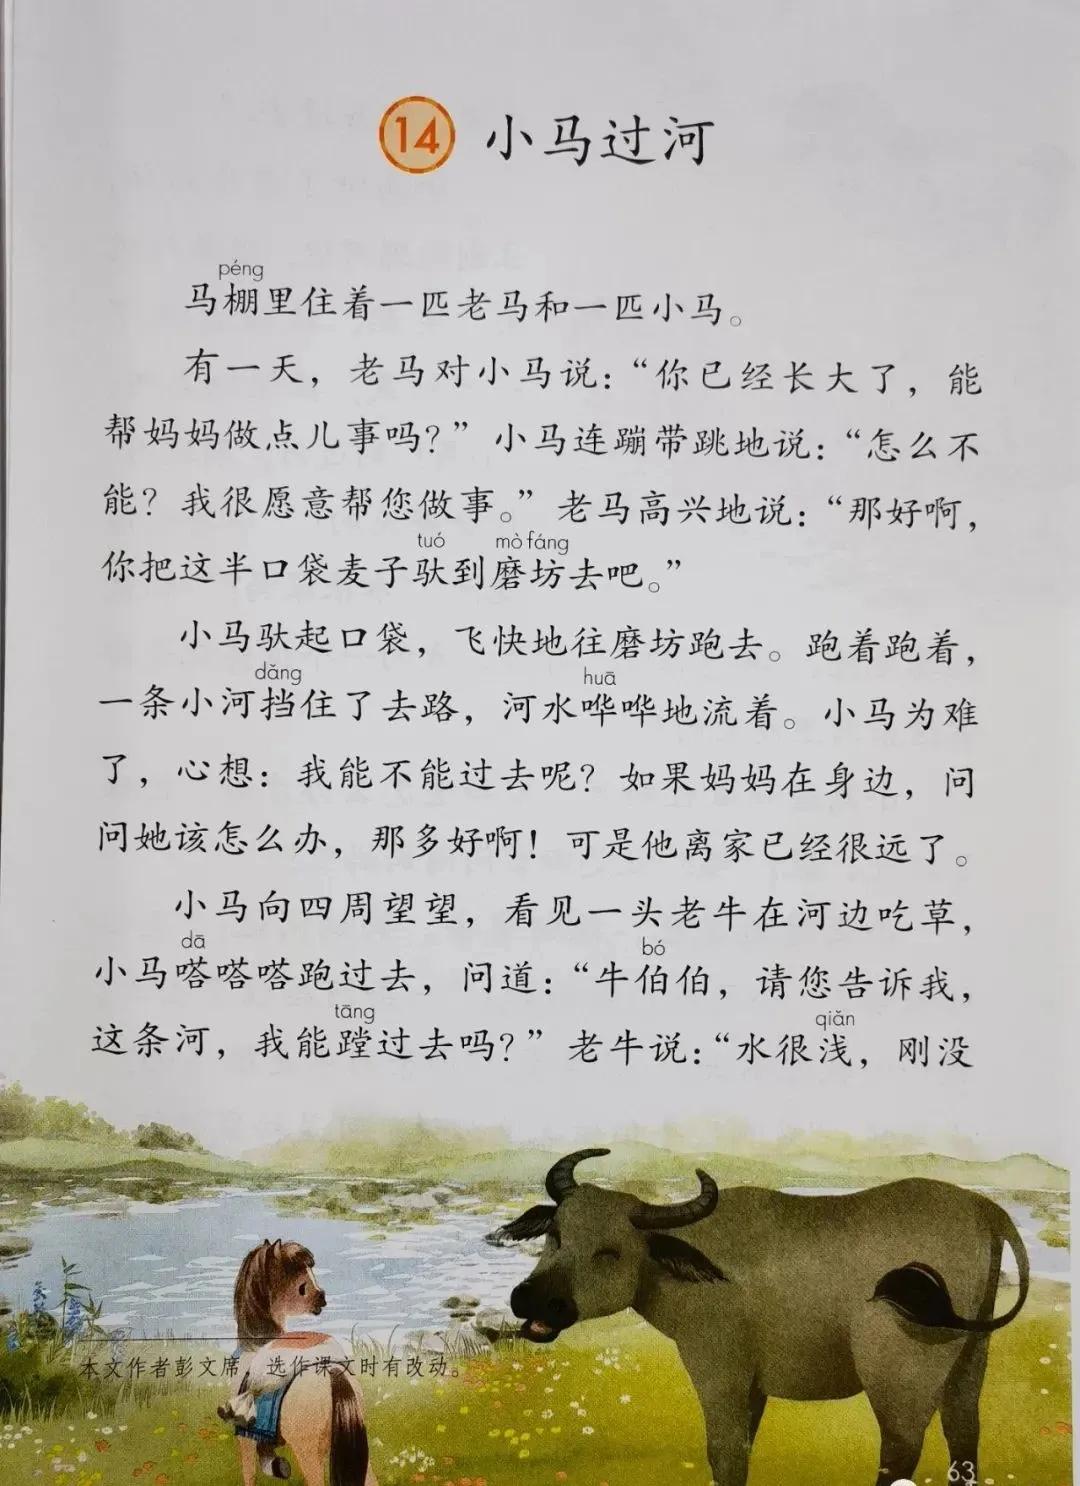 14 小马过河
péng
马棚里住着一匹老马和一匹小马。
有一天，老马对小马说：“你已经长大了，能
帮妈妈做点儿事吗？”小马连蹦带跳地说：“怎么不
能？我很愿意帮您做事。”老马高兴地说：“那好啊，
tuó mò fáng
你把这半口袋麦子驮到磨坊去吧。”
小马驮起口袋，飞快地往磨坊跑去。跑着跑着，
dǎng huā
一条小河挡住了去路，河水哗哗地流着。小马为难
了，心想：我能不能过去呢？如果妈妈在身边，问
问她该怎么办，那多好啊！可是他离家已经很远了。
小马向四周望望，看见一头老牛在河边吃草，
dā bó
小马嗒嗒嗒跑过去，问道：“牛伯伯，请您告诉我，
tāng qiǎn
这条河，我能蹚过去吗？”老牛说：“水很浅，刚没
本文作者彭文席，选作课文时有改动。
63